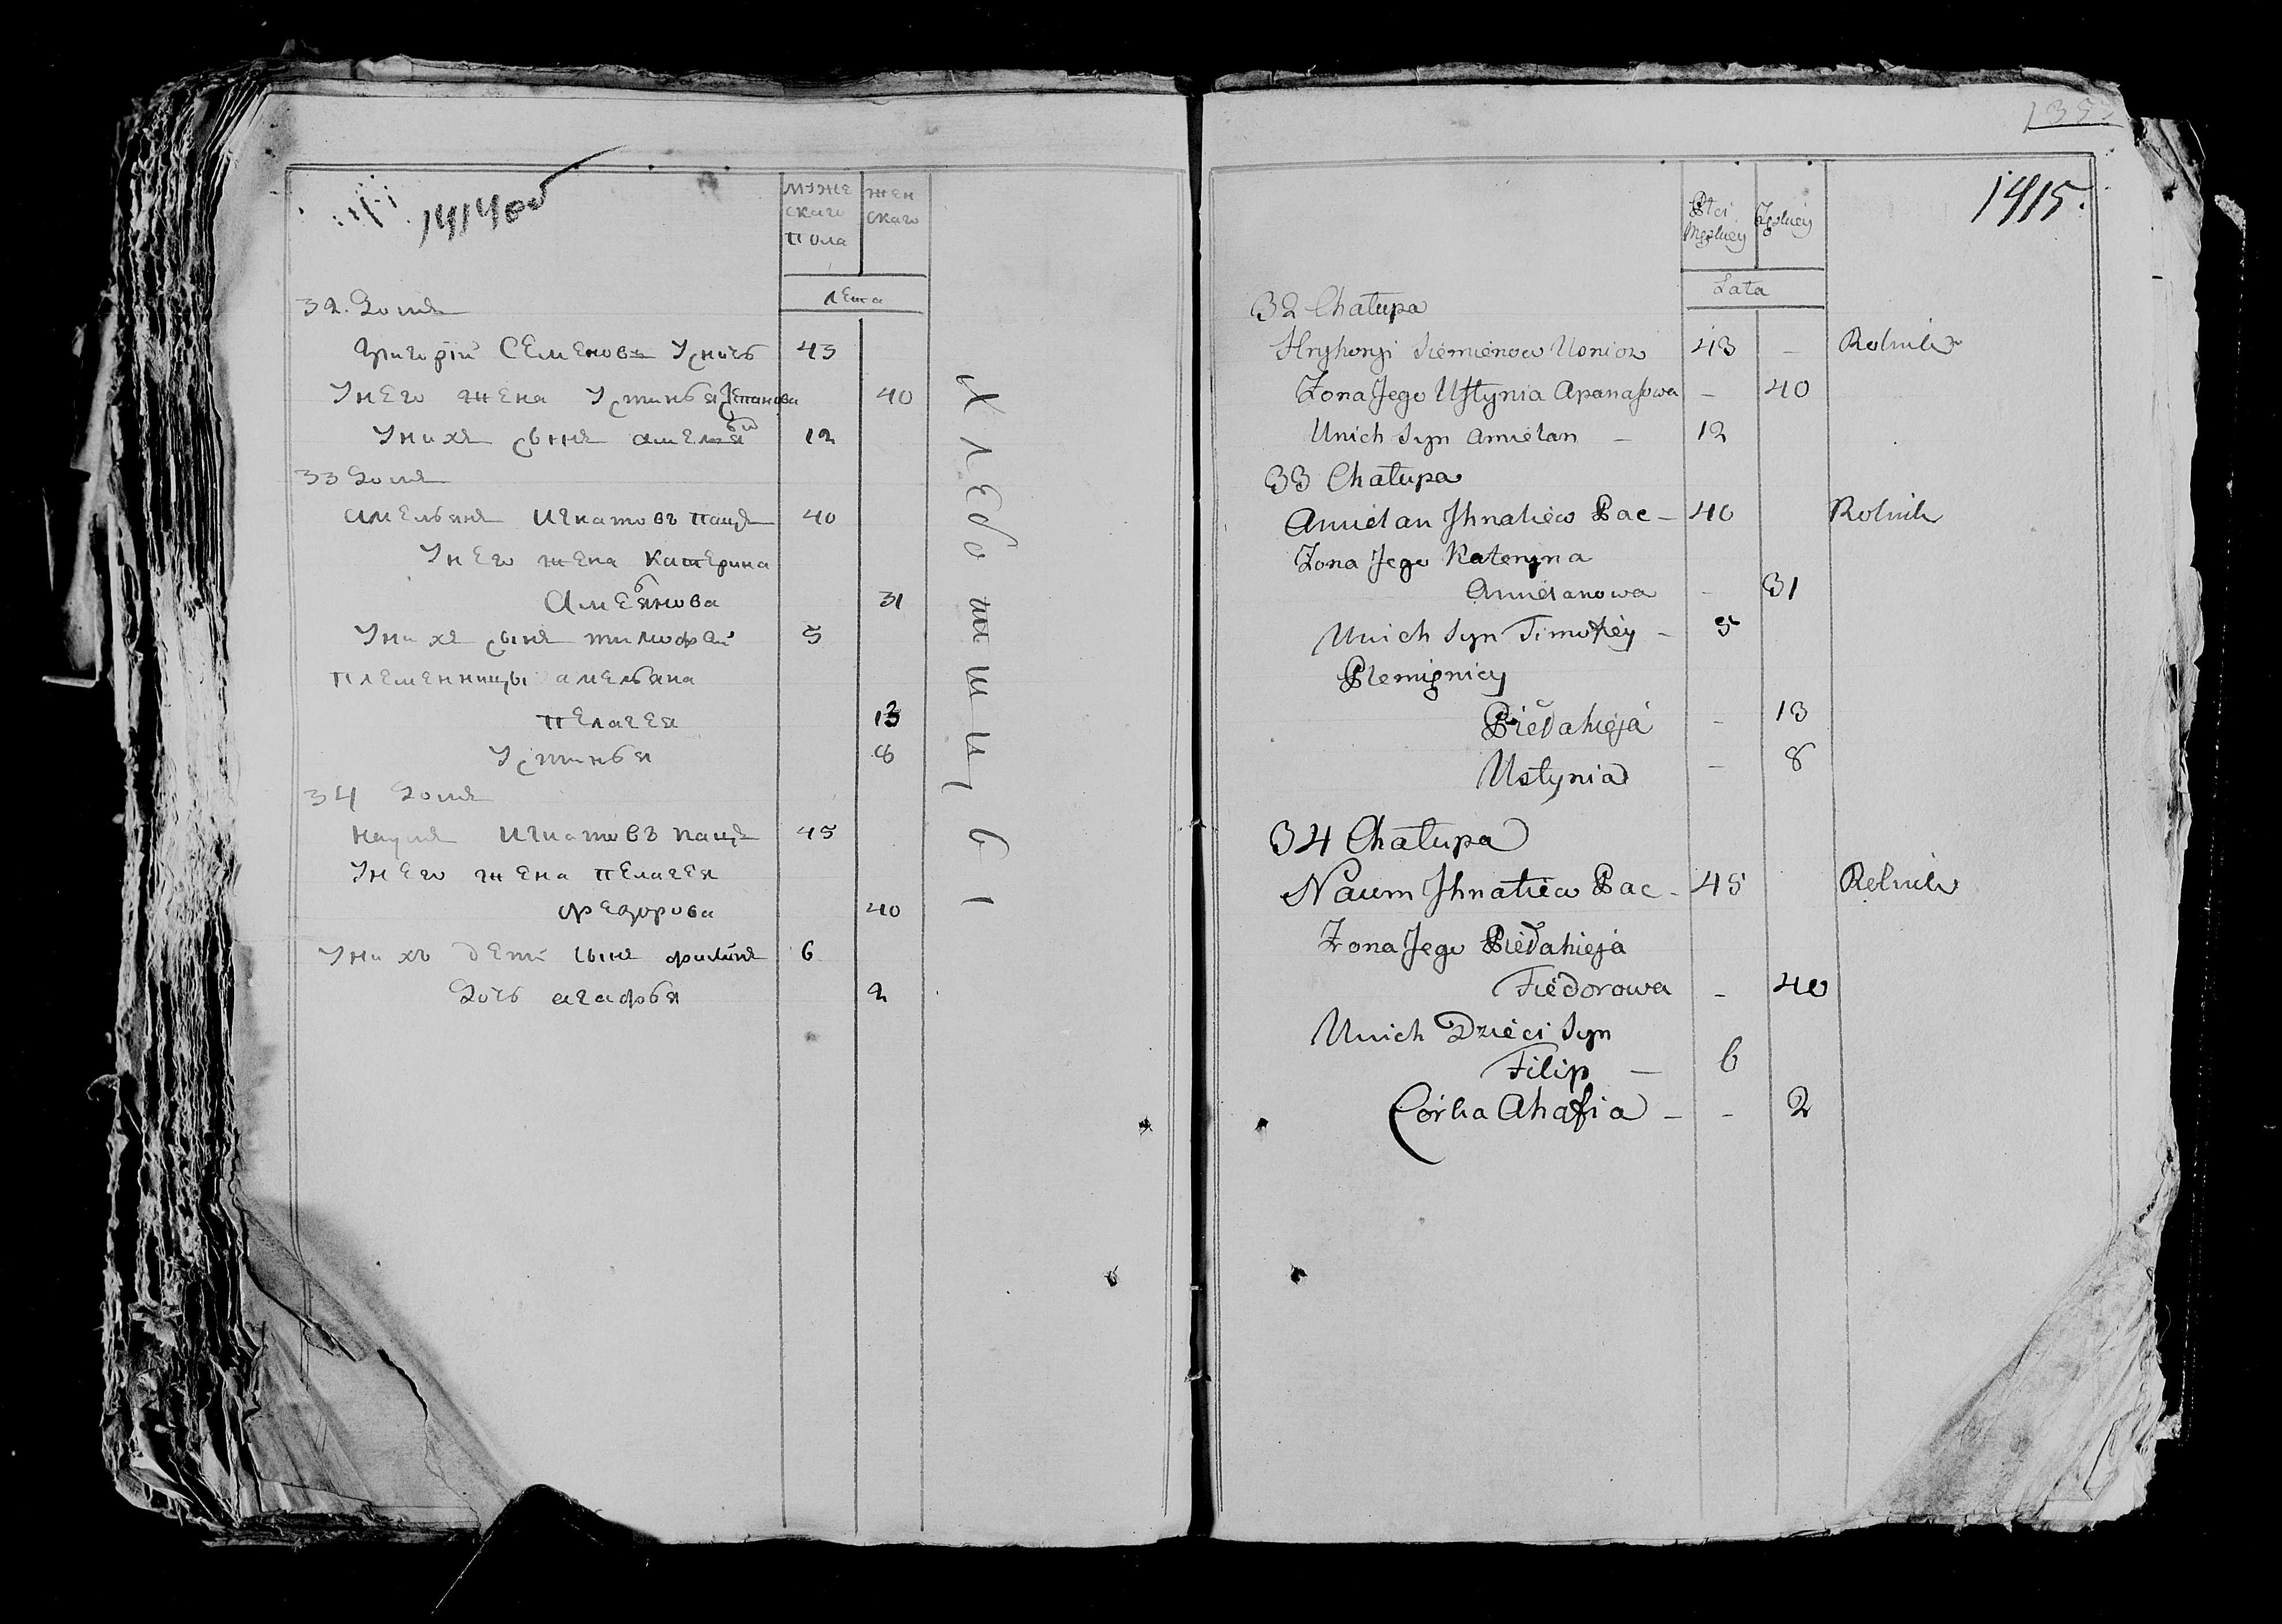 1414об
мУже
скаго
пола
жен
скаго
лета
32. Домъ
Григорій Семеновъ
43
Унего жена Устинья
40
Унихъ сынъ амелья
12
33 Домъ
Амельянъ Игнатовъ пацъ
40
Унего жена Катерина
Амельянова
31
Унихъ сынъ тимофей
5
племенницы амельяна
пелагея
13
Устинья
8
34 Домъ
наумъ Игнатовъ пацъ
45
Унего жена пелагея
федорова
40
Унихъ дети сынъ филипъ
6
Дочь агафья
2
Хлебопашцы
1415.
Płci
Męskiey
Żeńskiey
Lata
32 Chałupa
Hryhoryi Siemienow
43
–
Rolnik
Żona Jego Ustynia Apanasowa
–
40
Unich Syn Amielan –
12
33 Chałupa
Amielan Ihnatiew Pac –
40
Rolnik
Żona Jego Kateryna
Amielanowa
–
31
Unich Syn Timofiey –
5
Plemięnicy
Pielahieja
–
13
Ustynia
–
8
34 Chałupa
Naum Ihnatiew Pac –
45
Rolnik
Żona Jego Pielahieja
Fiedorowa
–
40
Unich Dzieci Syn
Filip –
6
Córka Ahafia –
–
2